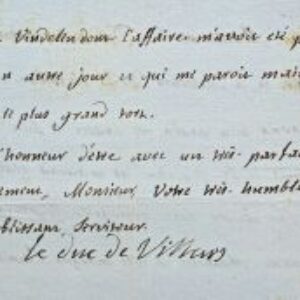 Vindelendour l'affaire m'avoit été p
n autre jour ce qui me paroit m
le plus grand tort.
l'honneur d'etre avec un très parfa
ement, Monsieur, Votre très humble
béissant, Serviteur.
le duc de Villars